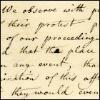 We observe with p
their protest
of our proceeding
d that the place
in any event, tha
ication of this aff
they would even